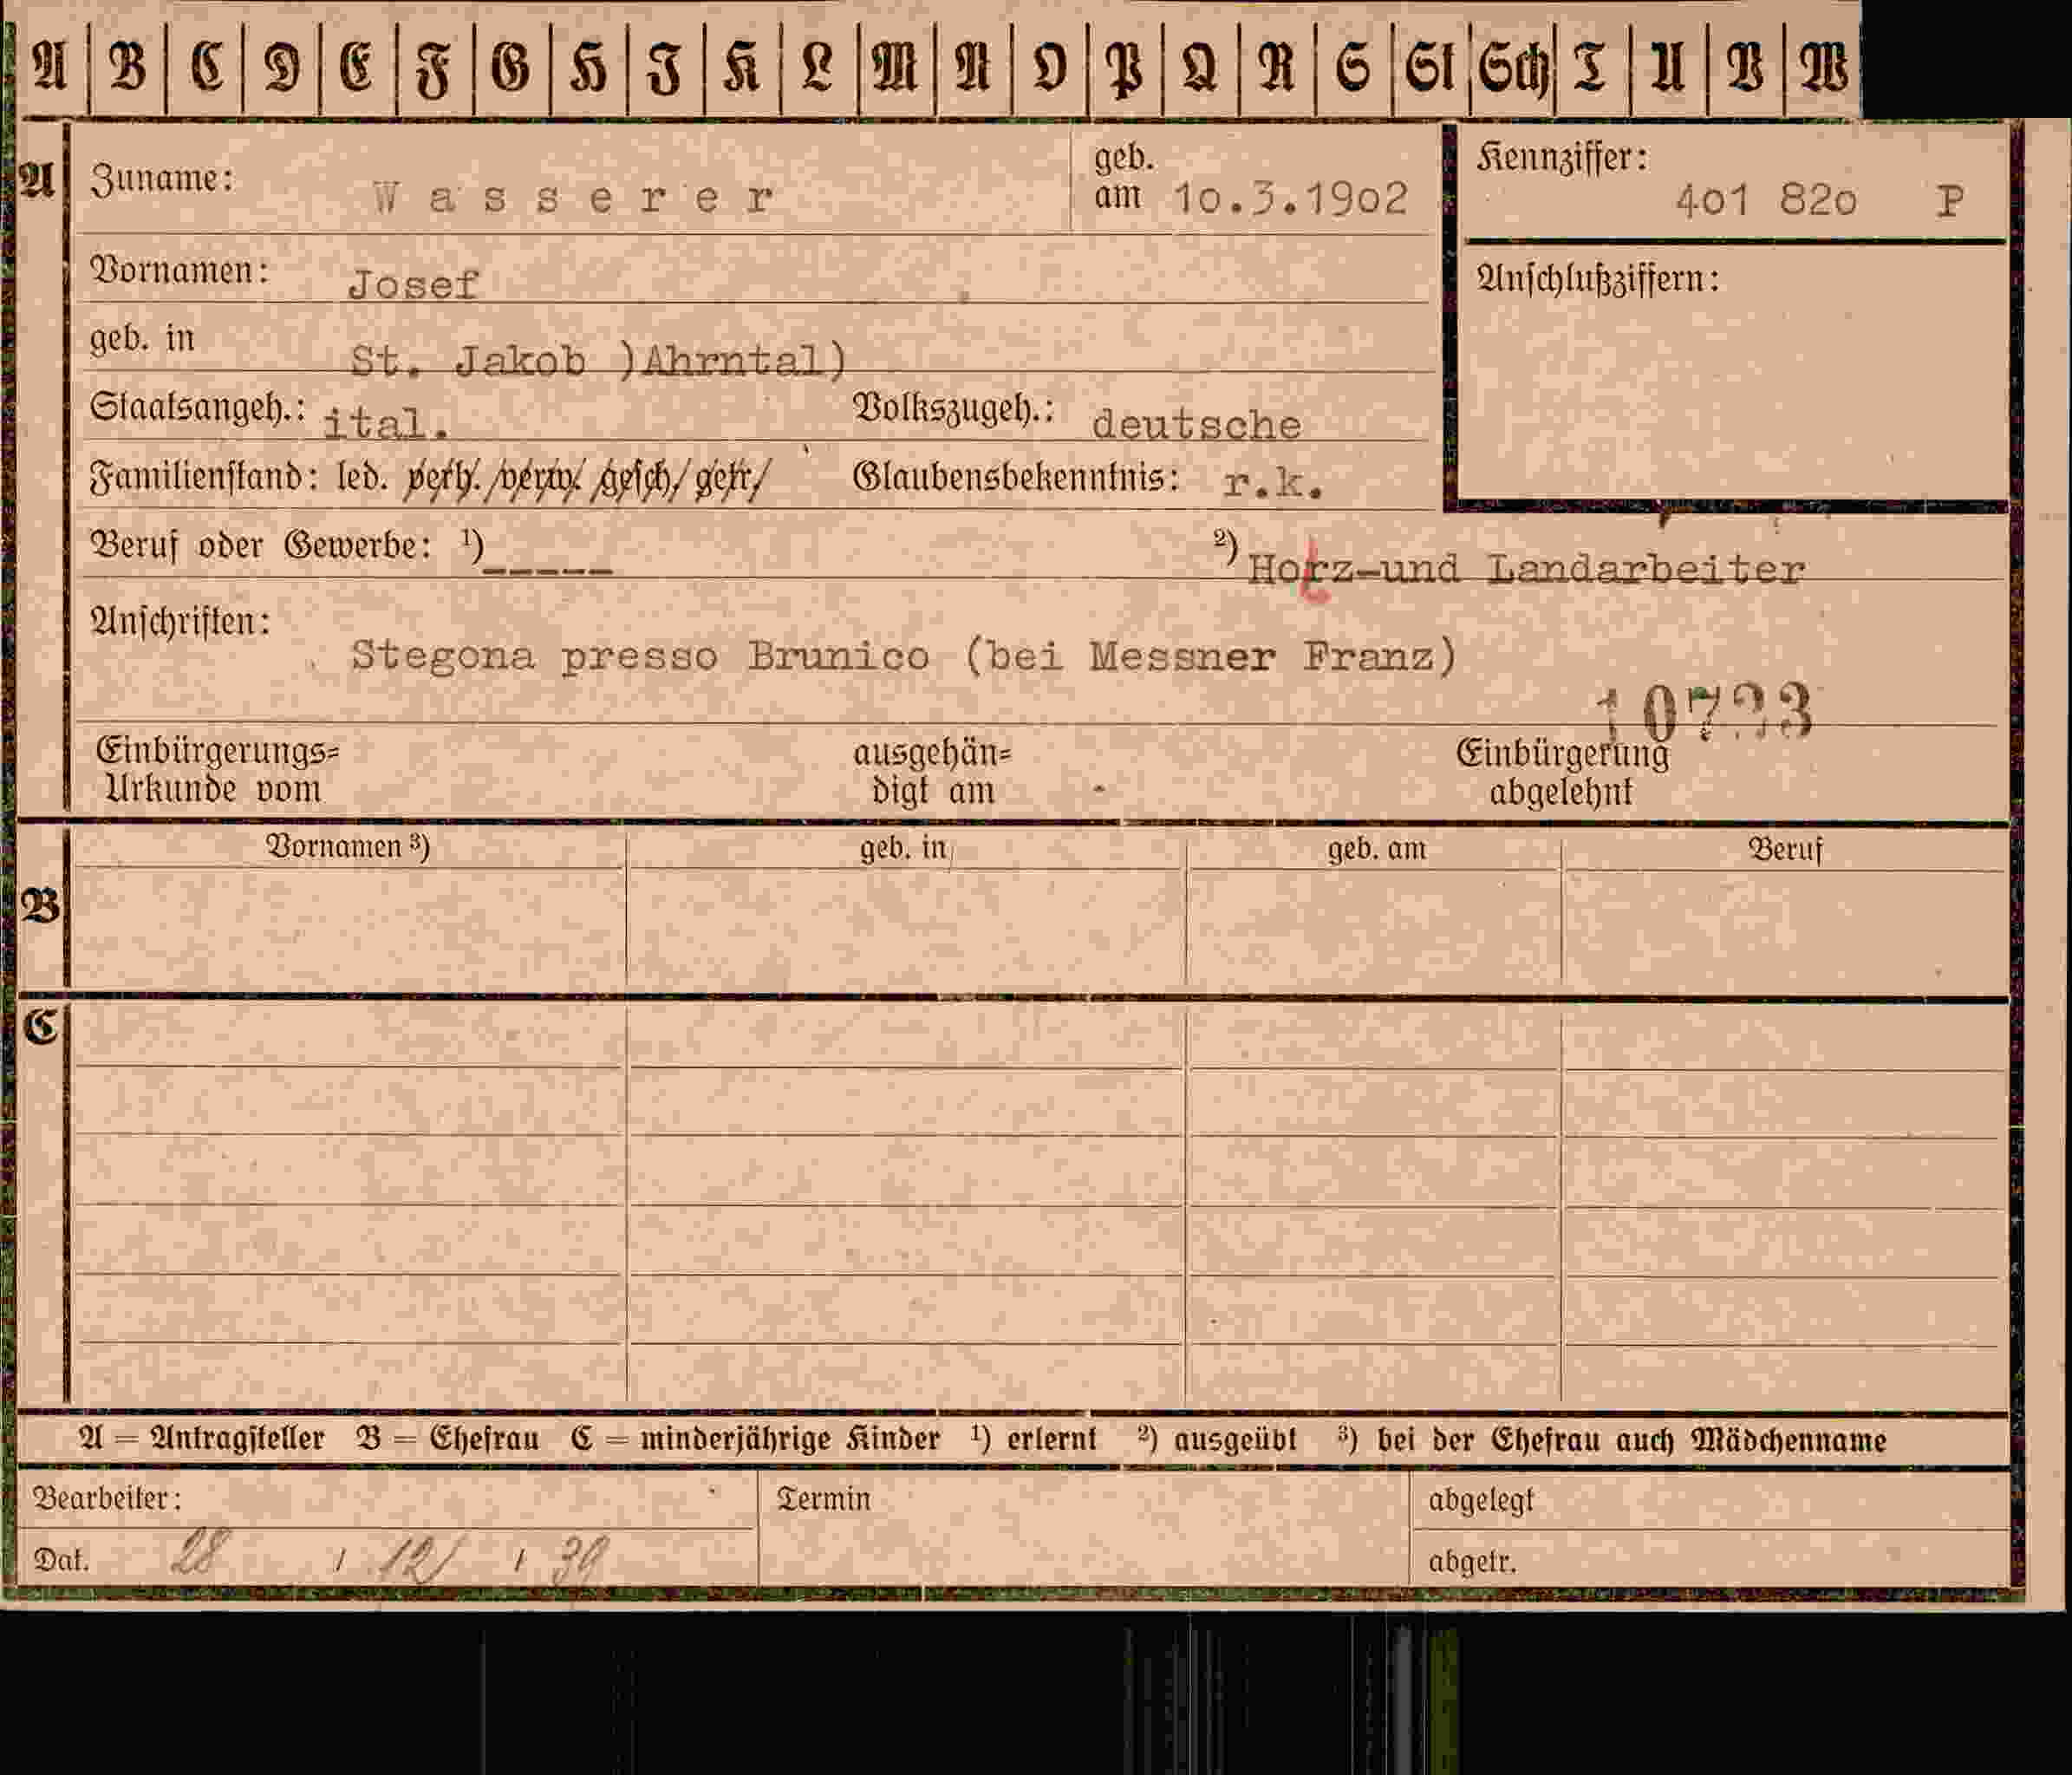 A B C D E F G H I K L M N O P Q R S St Sch T U V W
A Zuname: Wasserer geb. am 10.3.1902 Kennziffer: 401 820 P
Vornamen: Josef Anschlußziffern:
geb. in St. Jakob )Ahrntal)
Staatsangeh.: ital. Volkszugeh.: deutsche
Familienstand: led. verh./verw./gesch/getr/ Glaubensbekenntnis: r.k.
Beruf oder Gewerbe: ¹)_____ ²) Holz-und Landarbeiter
Anschriften:
Stegona presso Brunico (bei Messner Franz)
10733
Einbürgerungs= ausgehän= Einbürgerung
Urkunde vom digt am abgelehnt
B Vornamen ³) geb. in geb. am Beruf
C
A = Antragsteller B = Ehefrau C = minderjährige Kinder ¹) erlernt ²) ausgeübt ³) bei der Ehefrau auch Mädchenname
Bearbeiter: Termin abgelegt
Dat. 28 / 12 / 39 abgetr.